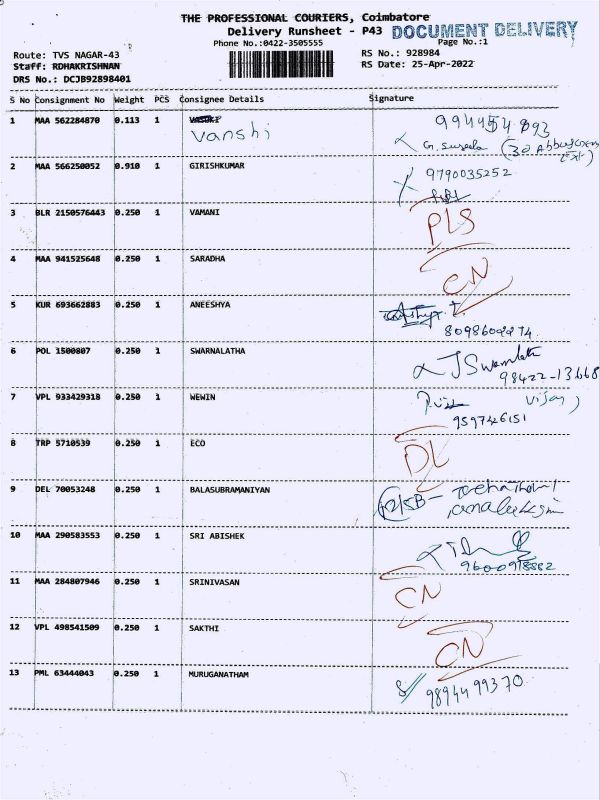 THE PROFESSIONAL COURIERS, Coimbatore
Delivery Runsheet - P43 DOCUMENT DELIVERY
Phone No.:0422-3505555 Page No.:1
Route: TVS NAGAR-43 RS No.: 928984
Staff: RDHAKRISHNAN RS Date: 25-Apr-2022
DRS No.: DCJB92898401
S No Consignment No Weight PCS Consignee Details Signature
1 MAA 562284870 0.113 1
Vanshi
2 MAA 566250052 0.910 1 GIRISHKUMAR 9790035252
3 BLR 2150576443 0.250 1 VAMANI PLS
4 MAA 941525648 0.250 1 SARADHA CN
5 KUR 693662883 0.250 1 ANEESHYA
6 POL 1500807 0.250 1 SWARNALATHA
98422-13668
7 VPL 933429318 0.250 1 WEWIN Vijay
959746151
8 TRP 5710539 0.250 1 ECO DL
9 DEL 70053248 0.250 1 BALASUBRAMANIYAN
10 MAA 290583553 0.250 1 SRI ABISHEK
11 MAA 284807946 0.250 1 SRINIVASAN CN
12 VPL 498541509 0.250 1 SAKTHI CN
13 PML 63444043 0.250 1 MURUGANATHAM 9894499370